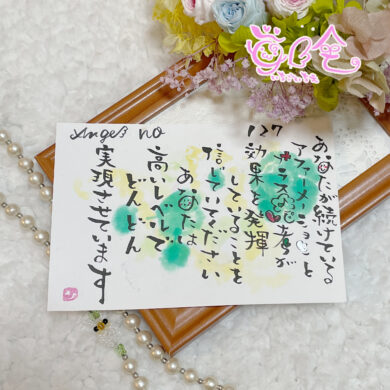 Angel no
127
あなたが続けている
アファーメーションと
プラス思考が
効果を発揮
していることを
信じていてください
あなたは
高いレベルで
どんどん
実現させています